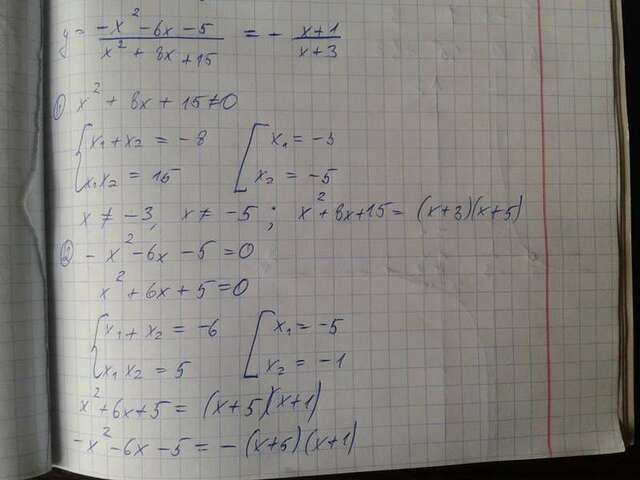 y = (-x² - 6x - 5)/(x² + 8x + 15) = - (x+1)/(x+3)
① x² + 8x + 15 ≠ 0
{ x₁ + x₂ = -8 [ x₁ = -3
{ x₁x₂ = 15 [ x₂ = -5
x ≠ -3, x ≠ -5 ; x² + 8x + 15 = (x+3)(x+5)
② -x² - 6x - 5 = 0
x² + 6x + 5 = 0
{ x₁ + x₂ = -6 [ x₁ = -5
{ x₁ x₂ = 5 [ x₂ = -1
x² + 6x + 5 = (x+5)(x+1)
-x² - 6x - 5 = -(x+5)(x+1)